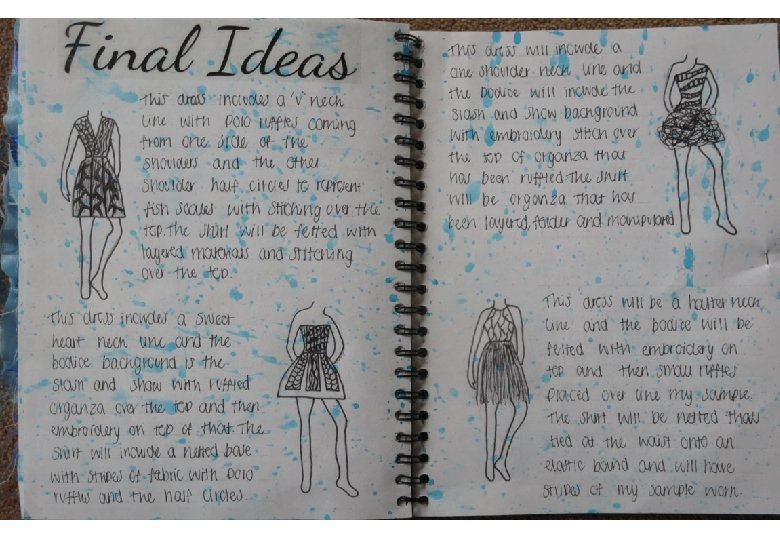 Final Ideas
This dress includes a 'v' neck
line with polo ruffles coming
from one side of the
shoulders and the other
shoulder half circles to represent
fish scales with stitching over the
top. The skirt will be felted with
layered materials and stitching
over the top.
This dress includes a sweet
heart neck line and the
bodice background is the
slash and show with ruffled
organza over the top and then
embroidery on top of that. The
skirt will include a netted base
with stripes of fabric with polo
ruffles and the half circles.
This dress will include a
one shoulder neck line and
the bodice will include the
slash and show background
with embroidery stitch over
the top of organza that
has been ruffled. The skirt
will be organza that has
been layered, and manipulated
This dress will be a halter neck
line and the bodice will be
felted with embroidery on
top and then small ruffles
placed over like my sample.
The skirt will be netted thats
tied at the waist onto an
elastic band and will have
stripes of my sample work.